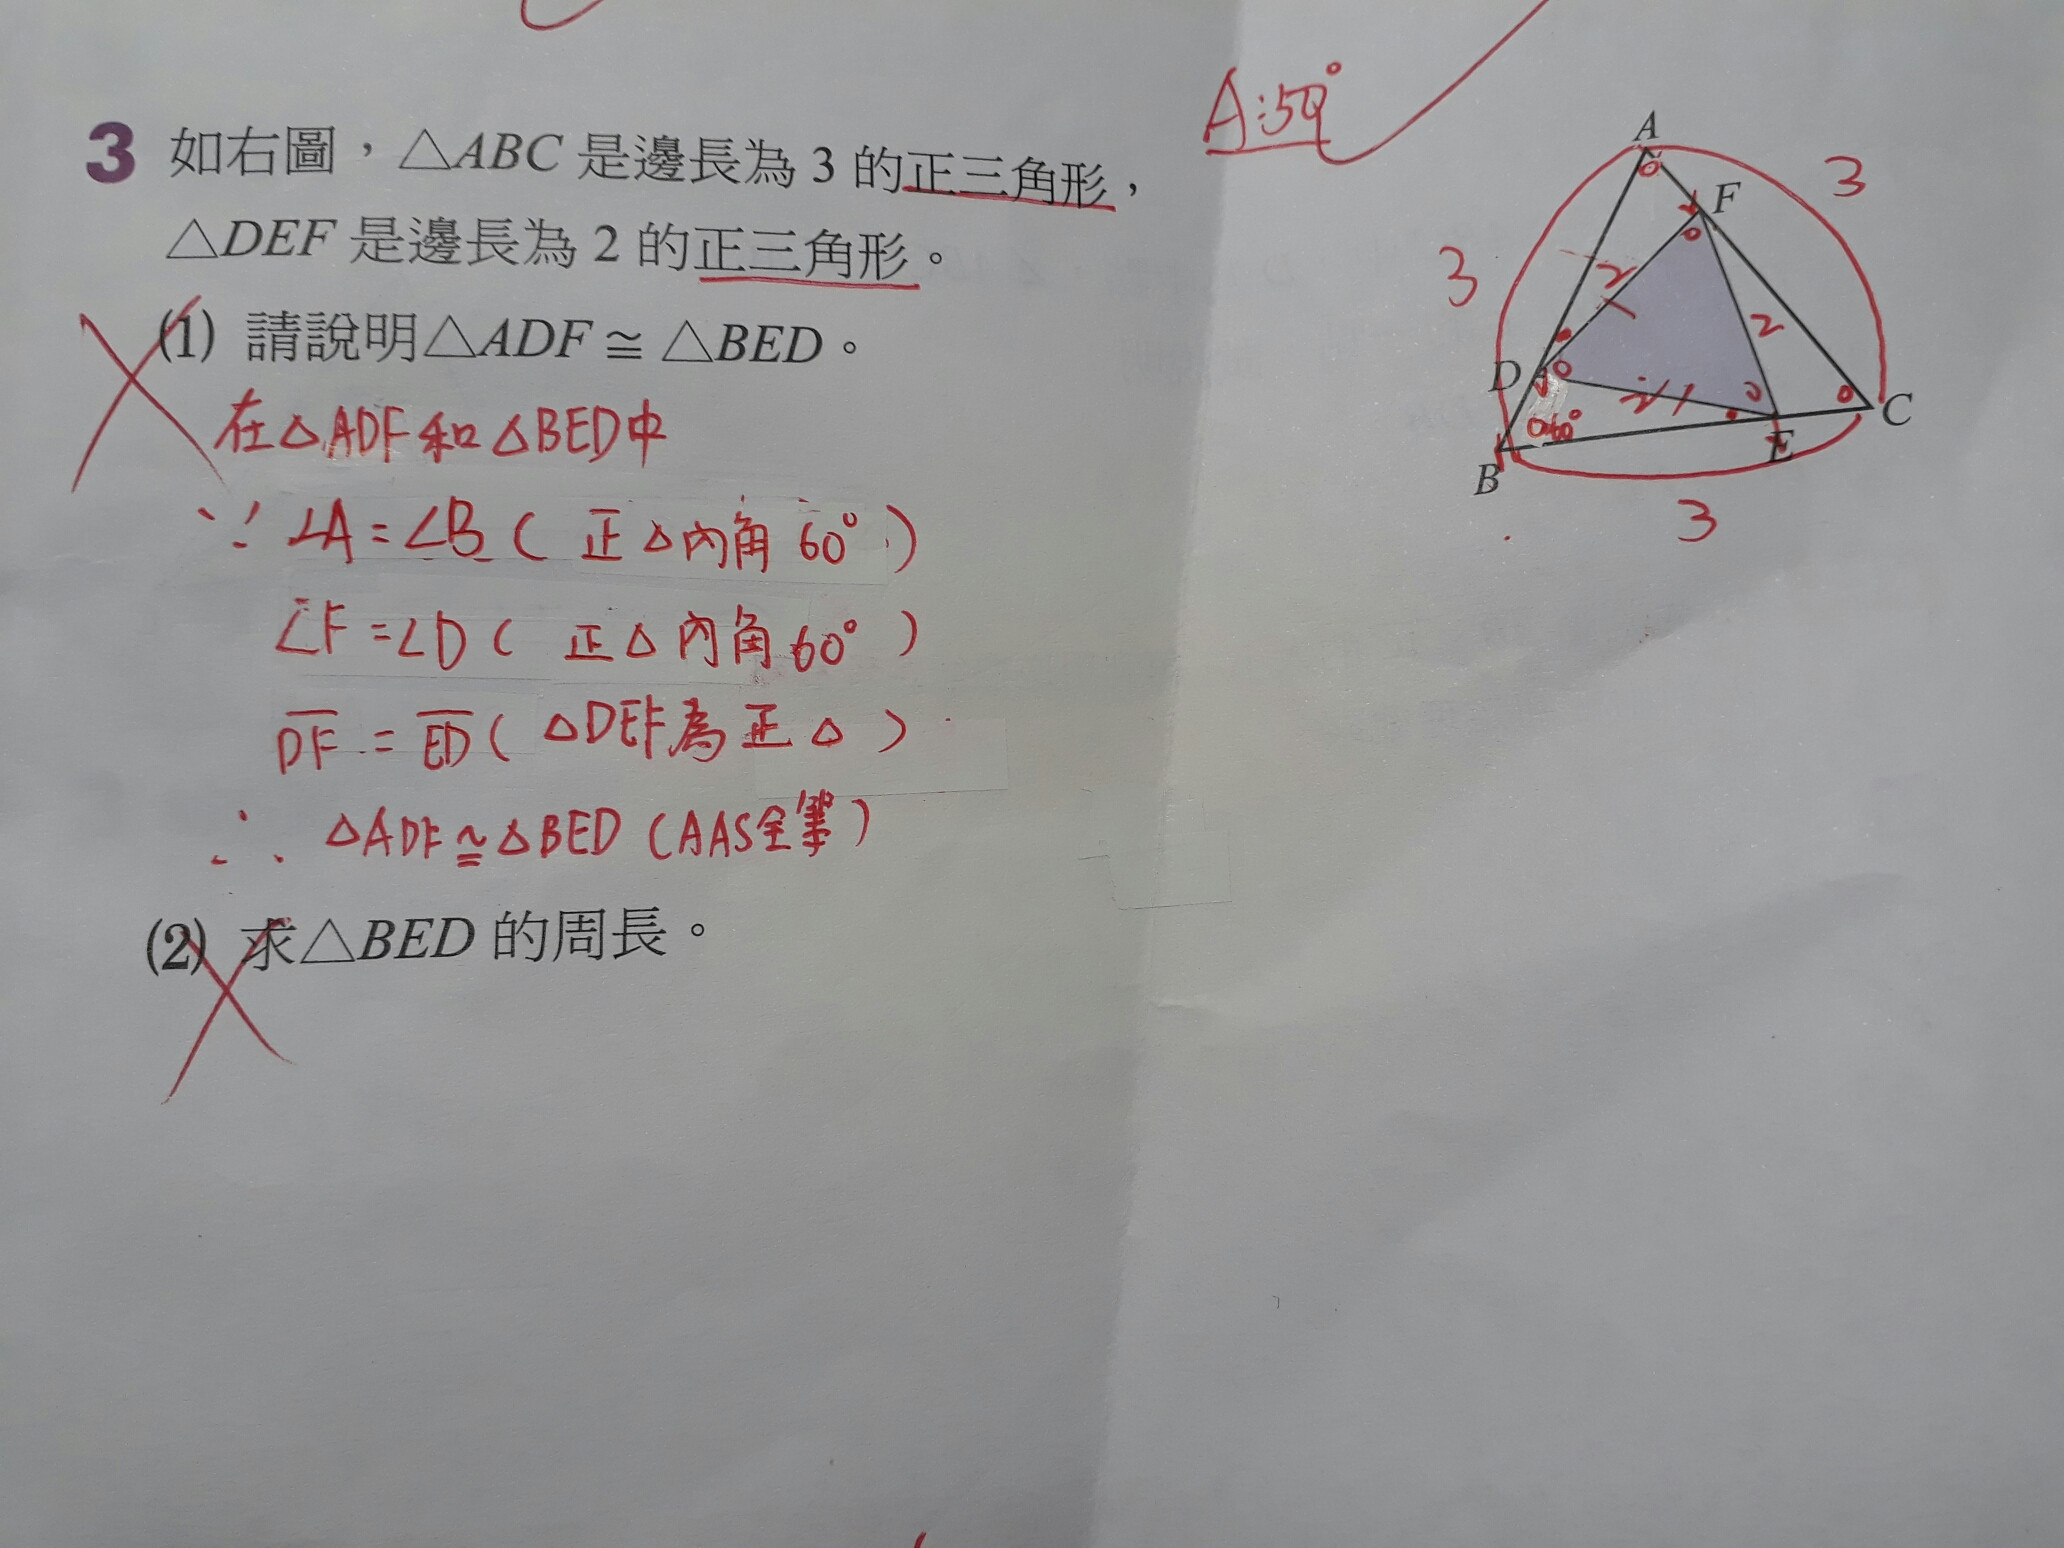 3 如右圖，△ABC 是邊長為 3 的正三角形，
△DEF 是邊長為 2 的正三角形。
(1) 請說明△ADF ≅ △BED。
在△ADF和△BED中
∵ ∠A=∠B ( 正△內角 60° )
∠F=∠D ( 正△內角60° )
DF = ED ( △DEF為正△ )
∴ △ADF≅△BED (AAS全等)
(2) 求△BED 的周長。
A:59°
A
F
3
3
2
2
D
C
60°
E
B
3